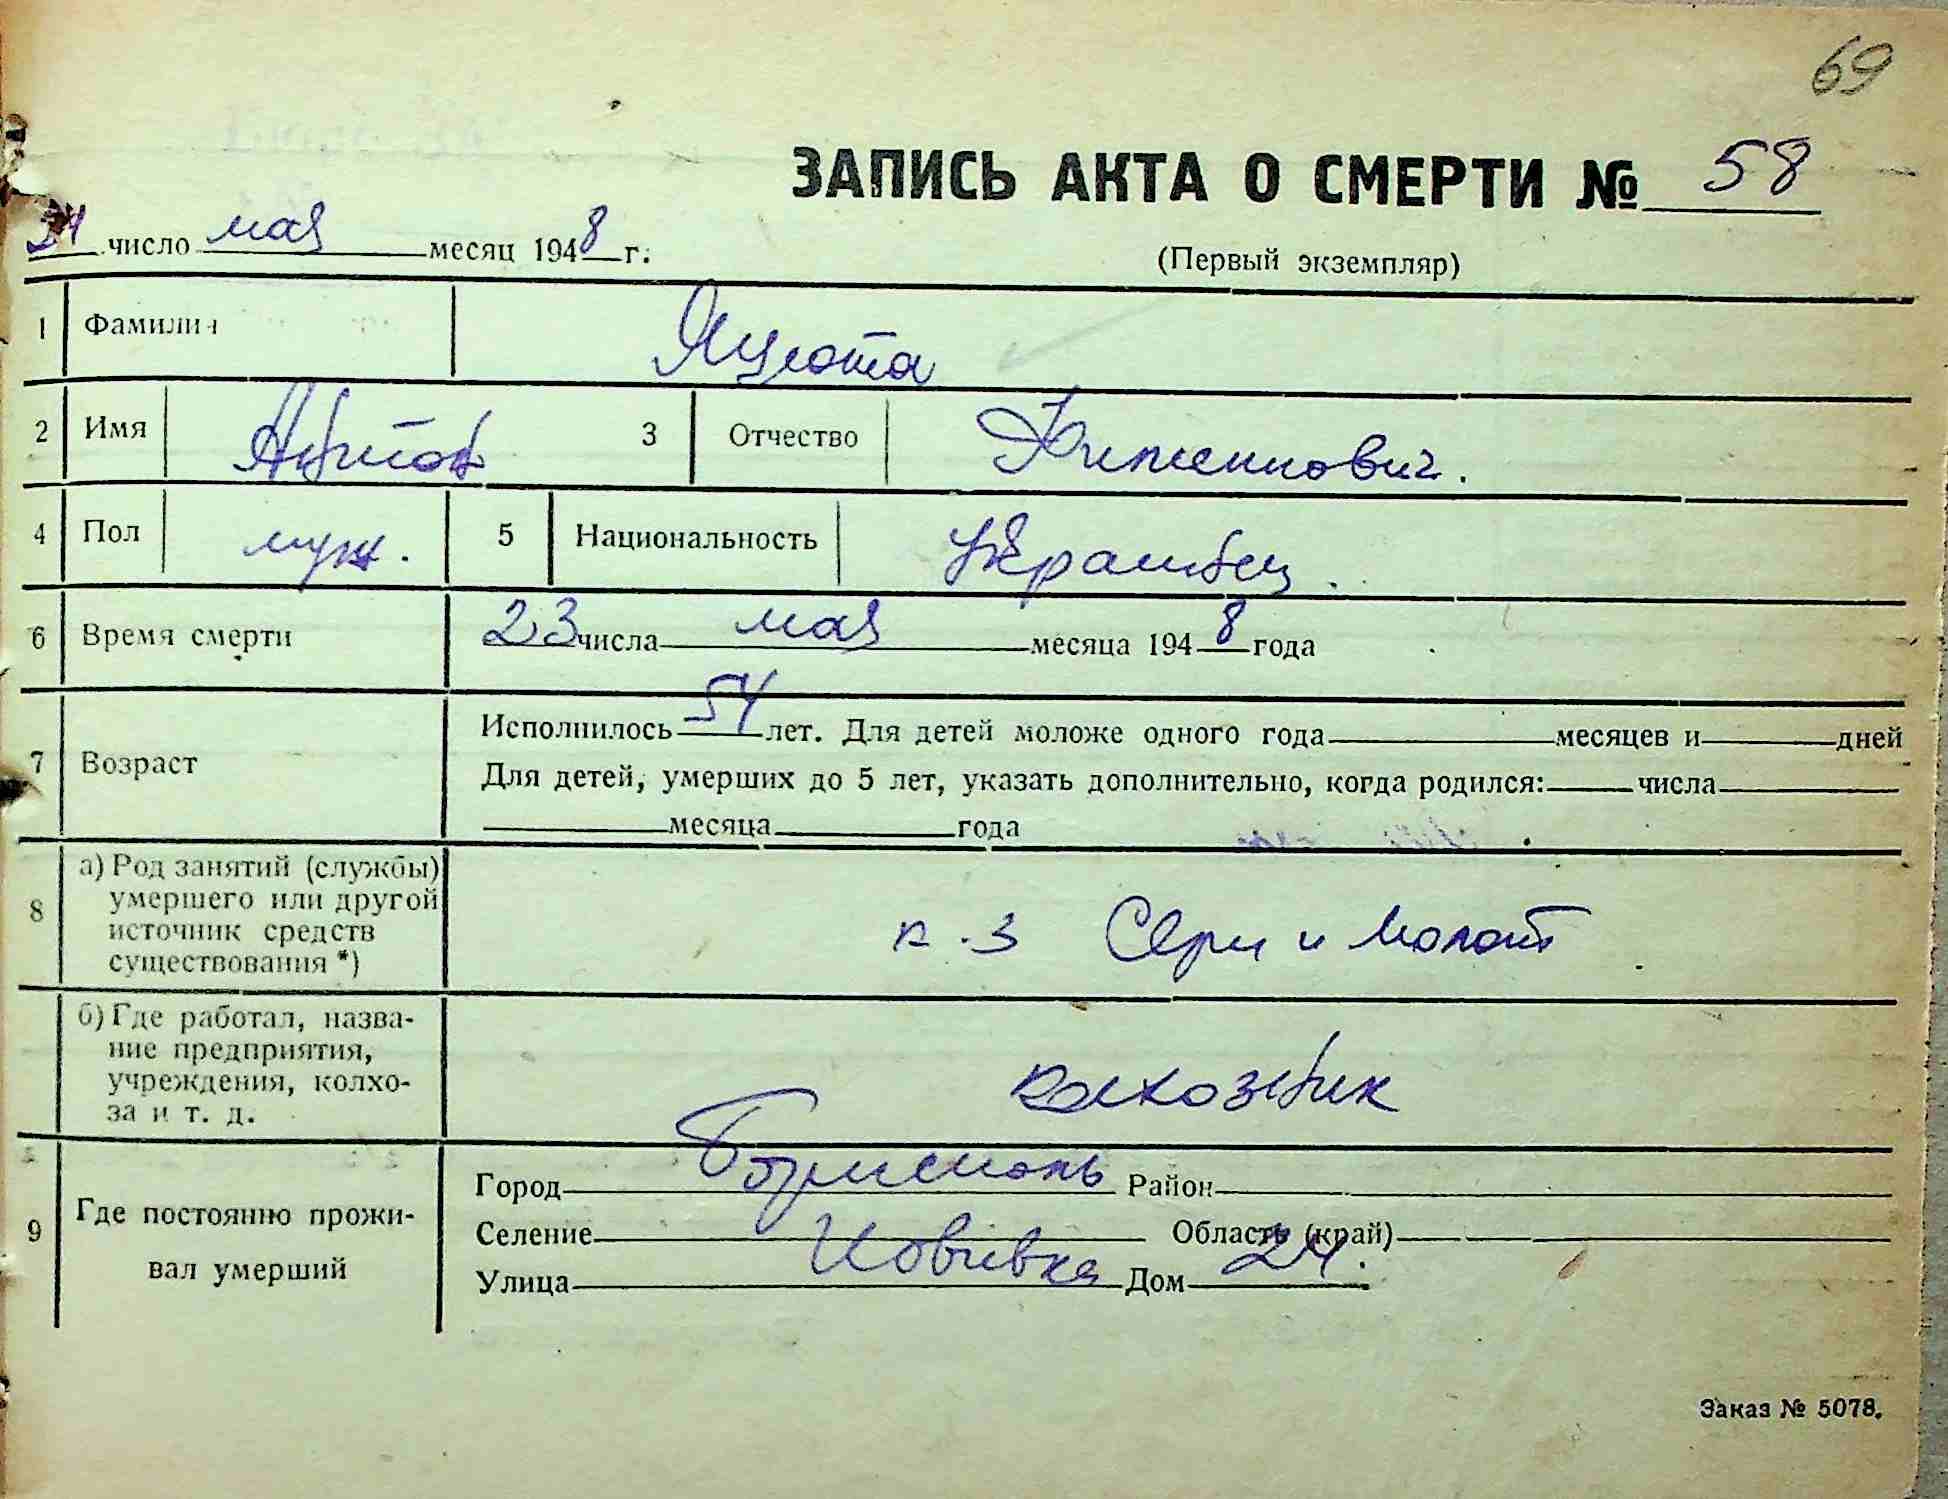 69
ЗАПИСЬ АКТА О СМЕРТИ № 58
24 число мая месяц 1948 г.
(Первый экземпляр)
1 Фамилия Яцюта
2 Имя Антон 3 Отчество
4 Пол муж. 5 Национальность Украинец.
6 Время смерти 23 числа мая месяца 1948 года
Исполнилось 54 лет. Для детей моложе одного года месяцев и дней
7 Возраст
Для детей, умерших до 5 лет, указать дополнительно, когда родился: числа
месяца года
8 а) Род занятий (службы)
умершего или другой
источник средств
существования *)
к-з Серп и Молот
б) Где работал, назва-
ние предприятия,
учреждения, колхо-
за и т. д.
колхозник
9 Где постоянно прожи-
вал умерший
Город Борисполь Район
Селение Область (край)
Улица Дом 24.
Заказ № 5078.